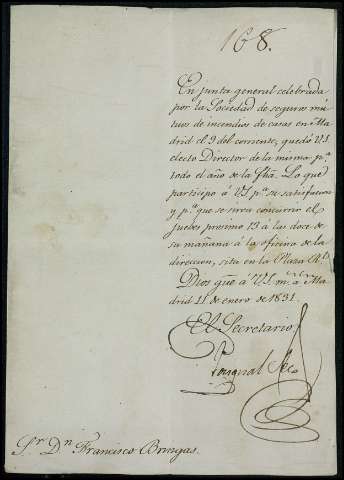 168.
En junta general celebrada
por la Sociedad de seguros mú-
tuos de incendios de casas en Ma-
drid el 9 del corriente, quedó V.S.
electo Director de la misma p.ª
todo el año de la fha. Lo que
participo á V.S. p.ª su satisfaccion
y p.ª que se sirva concurrir el
jueves procsimo 13 á las doce de
su mañana á la oficina de la
direccion, sita en la Plaza R.l
Dios gue á V.S. m.s a.s Ma-
drid 11 de enero de 1831.
El Secretario
Pasqual Seco
S.r D.n Francisco Bringas.